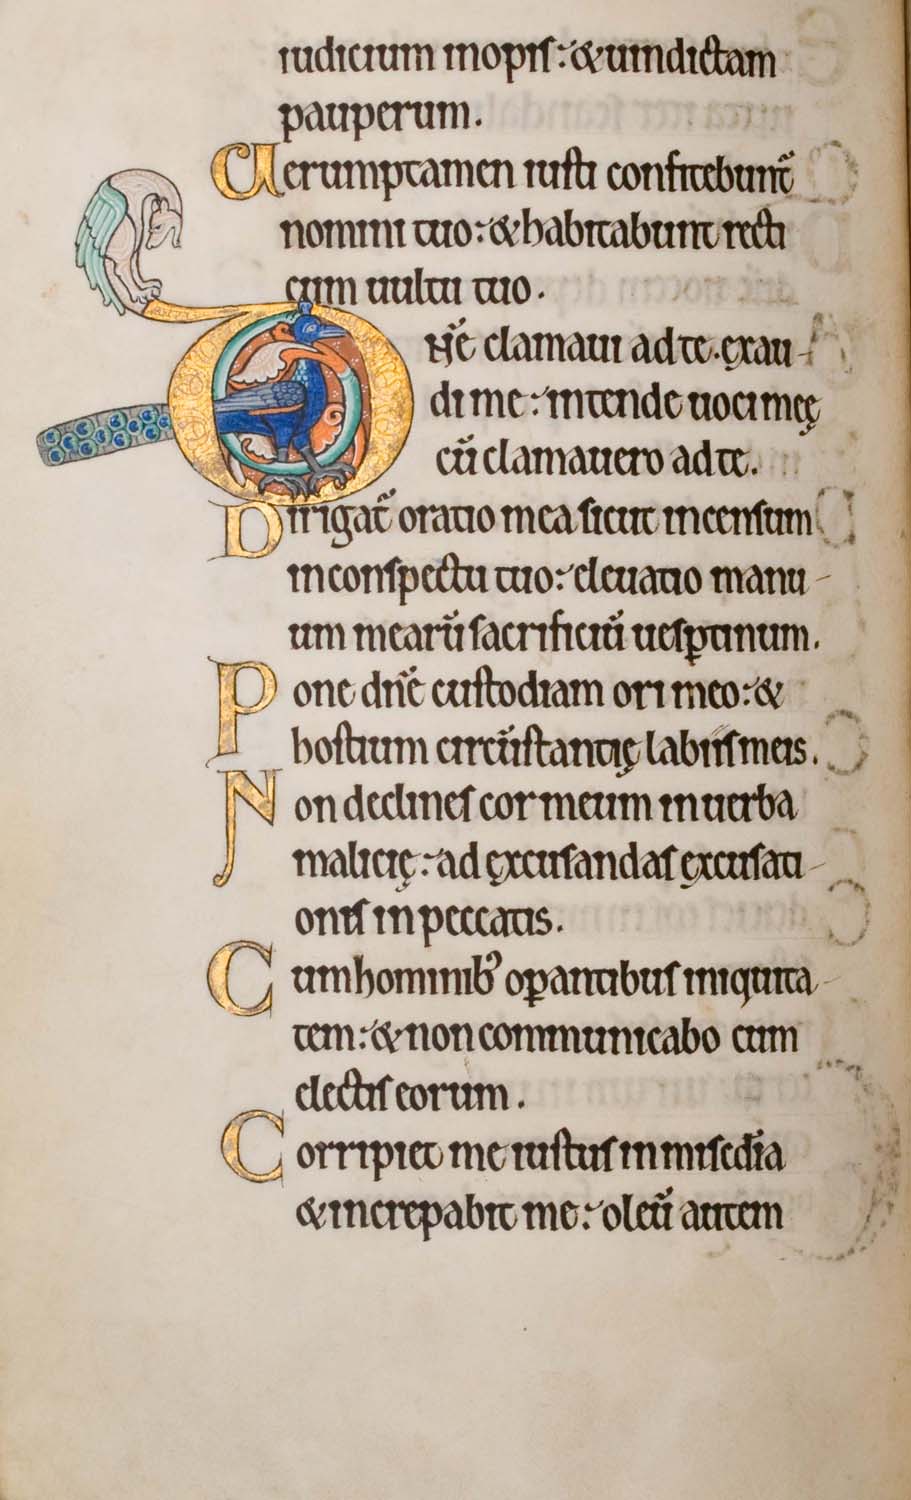 iudicium inopis: & uindictam
pauperum.
Uerumptamen iusti confitebunt᷑
nomini tuo: & habitabunt recti
cum uultu tuo.
Dn̄e clamaui ad te. exau-
di me: intende uoci meę
cū clamauero ad te.
Dirigat᷑ oratio mea sicut incensum
in conspectu tuo: eleuatio manu-
um mearū sacrificiū uesꝑtinum.
Pone dn̄e custodiam ori meo: &
hostium circūstantię labiis meis.
Non declines cor meum in uerba
malicię: ad excusandas excusati-
onis in peccatis.
Cum hominibꝰ oꝑantibus iniquita-
tem: & non communicabo cum
electis eorum.
Corripiet me iustus in mis̄edia
& increpabit me: oleū autem